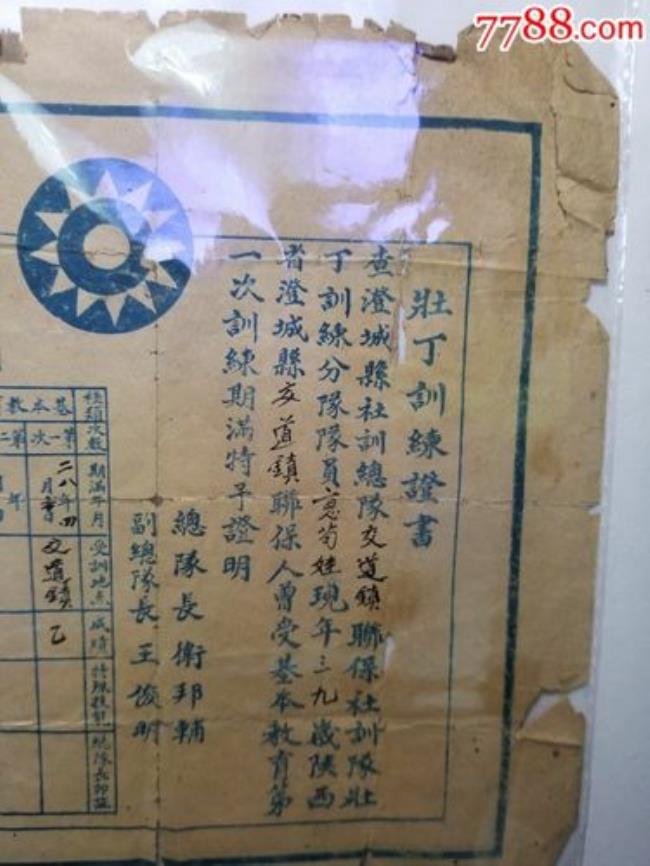 7788.com
壯丁訓練證書
查澄城縣社訓總隊交道鎮聯保社訓隊壯
丁訓練分隊隊員 菊娃現年三九歲陝西
省澄城縣交道鎮聯保人曾受基本教育第
一次訓練期滿特予證明
總隊長 衛邦輔
副總隊長 王俊明
種類次數
期滿年月
受訓地点
成績
特殊技能
總隊長印蓋
基本教
第一次
二八年四月 日
交道鎮
乙
第二
年